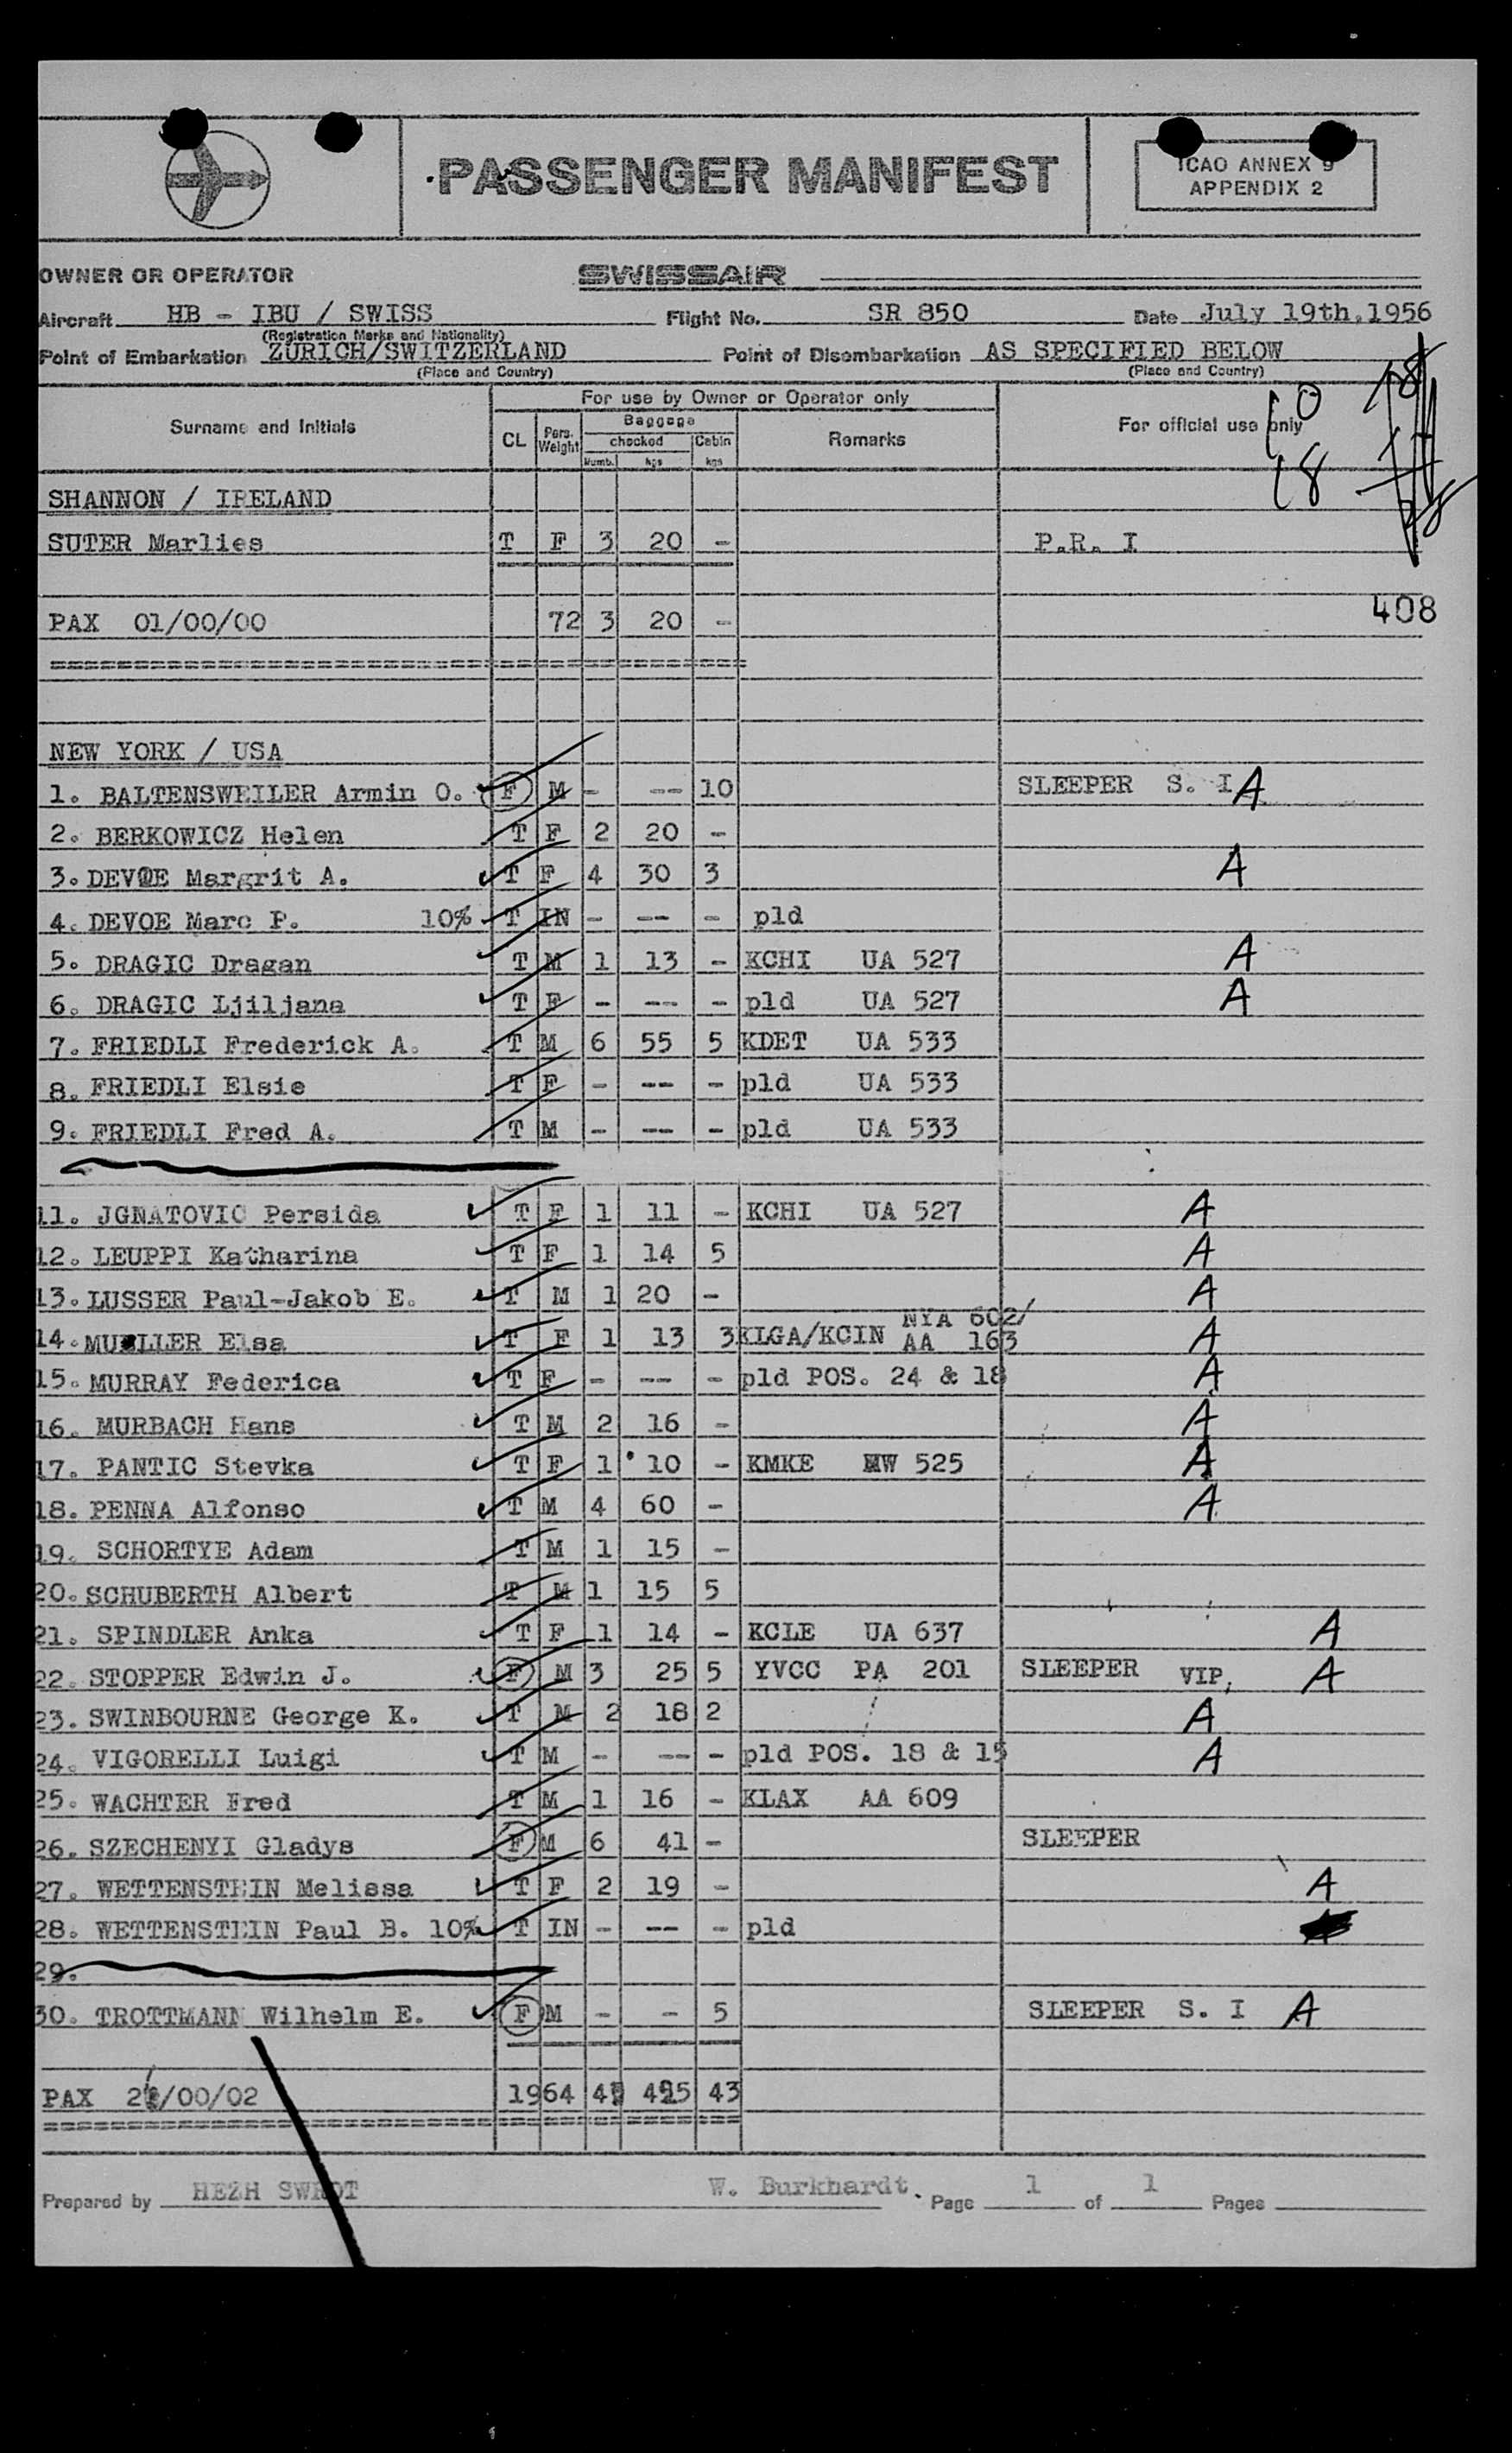 PASSENGER MANIFEST
ICAO ANNEX 9
APPENDIX 2
OWNER OR OPERATOR SWISSAIR
Aircraft HB - IBU / SWISS Flight No. SR 850 Date July 19th.1956
(Registration Marks and Nationality)
Point of Embarkation ZURICH/SWITZERLAND Point of Disembarkation AS SPECIFIED BELOW
(Place and Country) (Place and Country)
For use by Owner or Operator only
Surname and Initials CL Pers. Weight Baggage checked Numb. kgs Cabin kgs Remarks For official use only
10
18
SHANNON / IRELAND
SUTER Marlies T F 3 20 - P.R. I
408
PAX 01/00/00 72 3 20 -
NEW YORK / USA
1. BALTENSWEILER Armin O. F M - -- 10 SLEEPER S. I A
2. BERKOWICZ Helen T F 2 20 -
3. DEVOE Margrit A. T F 4 30 3 A
4. DEVOE Marc P. 10% T IN - -- - pld
5. DRAGIC Dragan T M 1 13 - KCHI UA 527 A
6. DRAGIC Ljiljana T F - -- - pld UA 527 A
7. FRIEDLI Frederick A. T M 6 55 5 KDET UA 533
8. FRIEDLI Elsie T F - -- - pld UA 533
9. FRIEDLI Fred A. T M - -- - pld UA 533
11. JGNATOVIC Persida T F 1 11 - KCHI UA 527 A
12. LEUPPI Katharina T F 1 14 5 A
13. LUSSER Paul-Jakob E. T M 1 20 - A
14. MUELLER Elsa T F 1 13 3 KLGA/KCIN NYA 602/ AA 163 A
15. MURRAY Federica T F - -- - pld POS. 24 & 18 A
16. MURBACH Hans T M 2 16 - A
17. PANTIC Stevka T F 1 10 - KMKE NW 525 A
18. PENNA Alfonso T M 4 60 - A
19. SCHORTYE Adam T M 1 15 -
20. SCHUBERTH Albert T M 1 15 5
21. SPINDLER Anka T F 1 14 - KCLE UA 637 A
22. STOPPER Edwin J. F M 3 25 5 YVCC PA 201 SLEEPER VIP, A
23. SWINBOURNE George K. T M 2 18 2 A
24. VIGORELLI Luigi T M - -- - pld POS. 18 & 15 A
25. WACHTER Fred T M 1 16 - KLAX AA 609
26. SZECHENYI Gladys F M 6 41 - SLEEPER
27. WETTENSTEIN Melissa T F 2 19 - A
28. WETTENSTEIN Paul B. 10% T IN - -- - pld
29.
30. TROTTMANN Wilhelm E. F M - - 5 SLEEPER S. I A
PAX /00/02 1964 43
Prepared by HEZH W. Burkhardt. Page 1 of 1 Pages